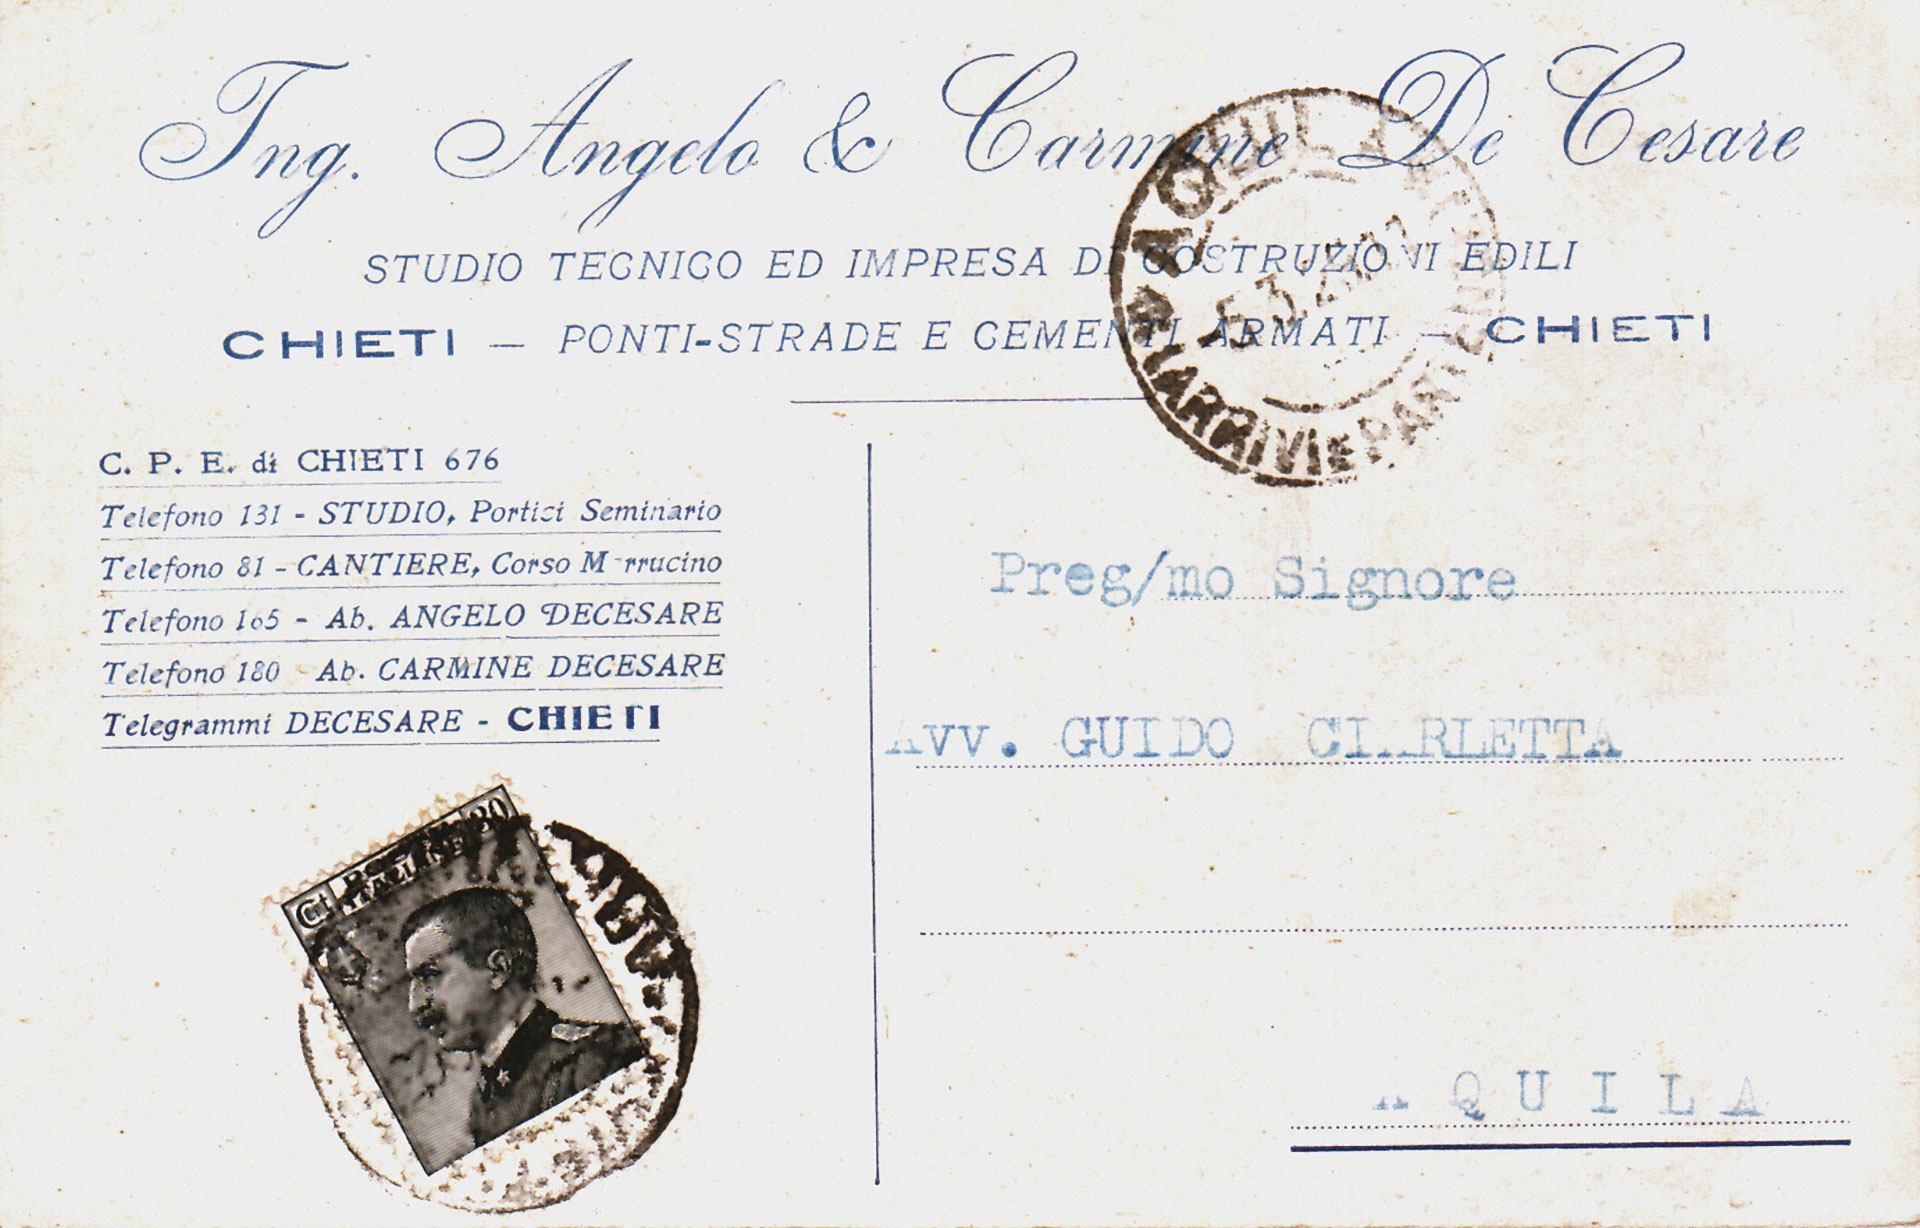 Ing. Angelo & Carmine De Cesare
STUDIO TECNICO ED IMPRESA DI COSTRUZIONI EDILI
CHIETI — PONTI-STRADE E CEMENTI ARMATI — CHIETI
AQUILA
ARRIVI E PARTENZE
C. P. E. di CHIETI 676
Telefono 131 - STUDIO, Portici Seminario
Telefono 81 - CANTIERE, Corso M rrucino
Telefono 165 - Ab. ANGELO DECESARE
Telefono 180 Ab. CARMINE DECESARE
Telegrammi DECESARE - CHIETI
Preg/mo Signore
Avv. GUIDO CIARLETTA
AQUILA
Ct POSTE ITALIANE 30